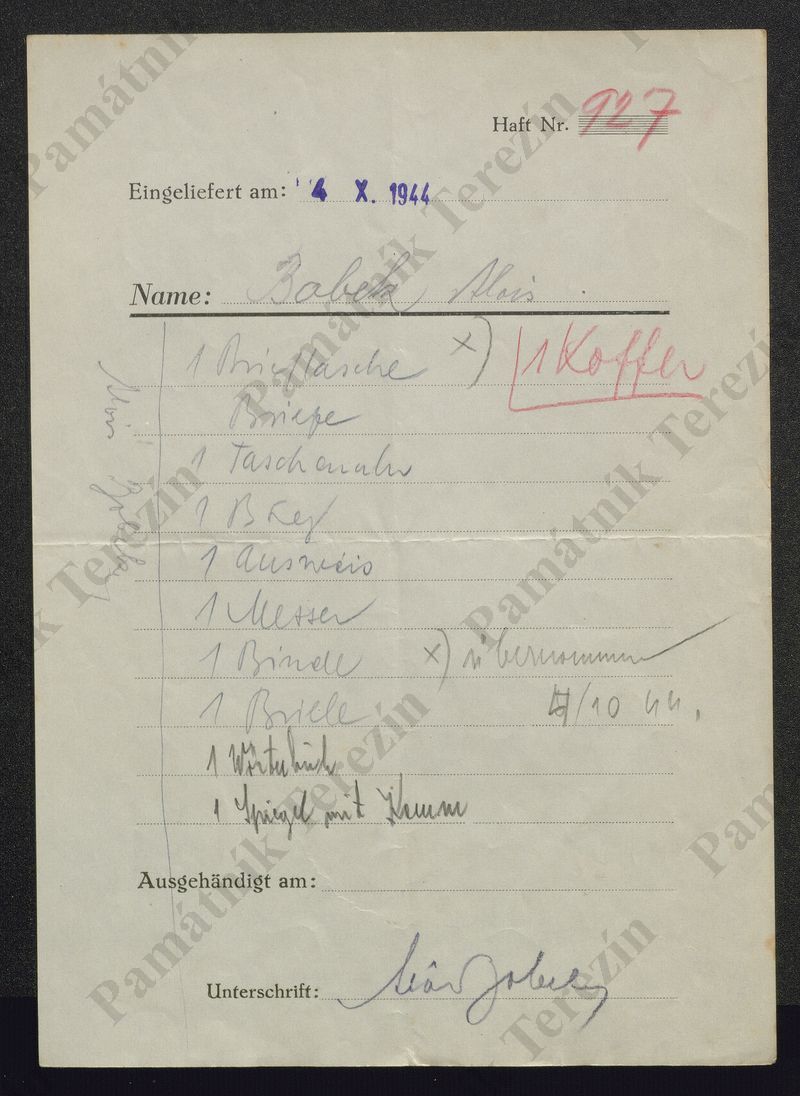 Haft Nr. 927
Eingeliefert am: 4 X. 1944
Name: Bobek Alois
1 Brieftasche x) 1 Koffer
Briefe
1 Taschenuhr
1
1 Ausweis
1 Messer
1 Binde x) übernommen
1 Brille /10 44.
1 Wörterbuch
1 Spiegel mit Kamm
Ausgehändigt am:
Unterschrift:
Alois
Památník Terezín
Památník Terezín
Památník Terezín
Památník Terezín